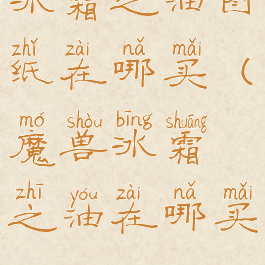 冰霜之油图
zhǐ zài nǎ mǎi
纸在哪买（
mó shòu bīng shuāng
魔兽冰霜
zhī yóu zài nǎ mǎi
之油在哪买